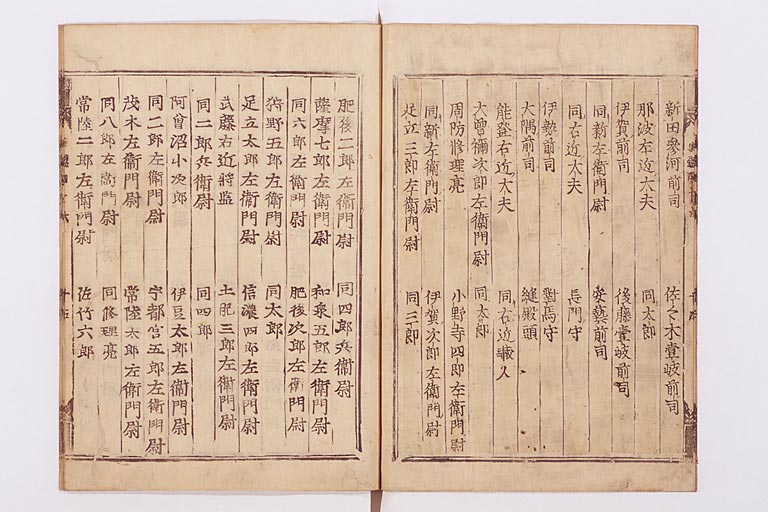 新田參河前司　佐々木壹岐前司
那波左近大夫　同太郎
伊賀前司　後藤壹岐前司
同新左衛門尉　安藝前司
同右近大夫　長門守
伊勢前司　對馬守
大隅前司　縫殿頭
能登右近大夫　同右近蔵人
大曾禰次郎左衛門尉　同太郎
周防修理亮　小野寺四郎左衛門尉
同新左衛門尉　伊賀次郎左衛門尉
足立三郎左衛門尉　同三郎
肥後二郎左衛門尉　同四郎兵衛尉
薩摩七郎左衛門尉　和泉五郎左衛門尉
同六郎左衛門尉　肥後次郎左衛門尉
狩野五郎左衛門尉　同太郎
足立太郎左衛門尉　信濃四郎左衛門尉
武藤右近將監　土肥三郎左衛門尉
同二郎兵衛尉　同四郎
阿曾沼小次郎　伊豆太郎左衛門尉
同二郎左衛門尉　宇都宮五郎左衛門尉
茂木左衛門尉　常陸太郎左衛門尉
同八郎左衛門尉　同修理亮
常陸二郎左衛門尉　佐竹六郎